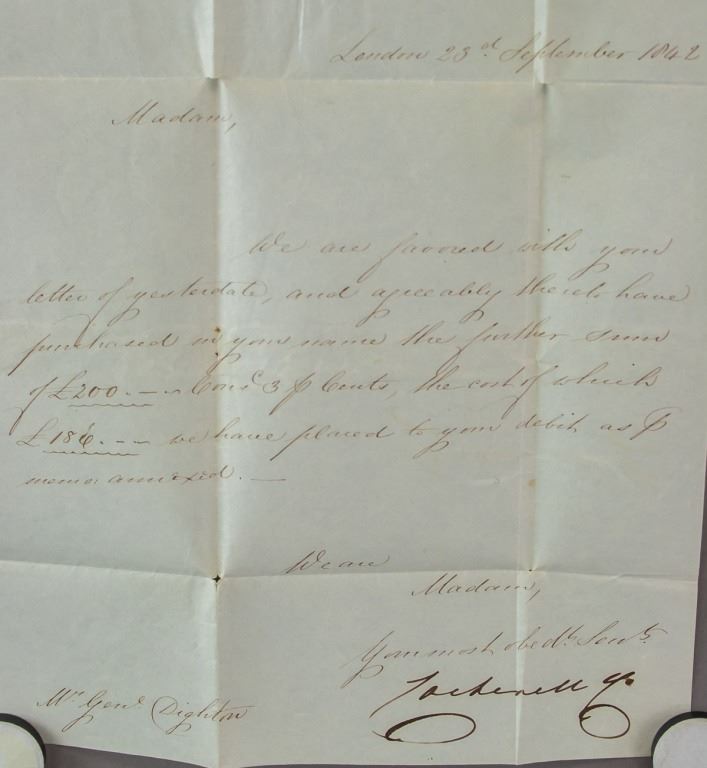 London 23d. September 1842
Madam,
We are favored with your
letter of yesterdate, and agreeably thereto have
purchased in your name the further sum
of £200.-- Cons. 3 ⅌ Cents, the cost of which
£186.-- we have placed to your debit as ⅌
memo: annexed. —
We are
Madam,
Your most obedt. Servts.
Cockerell & Co
Mrs Genl. Dighton